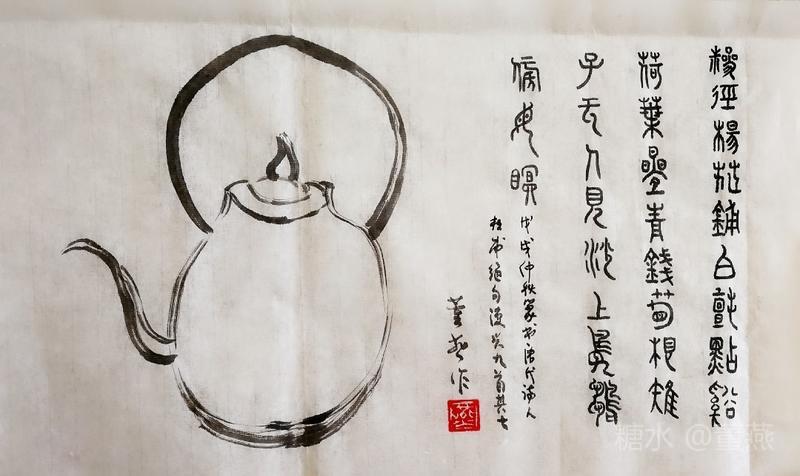 糝徑楊花鋪白氈點谿
荷葉疊青錢筍根雉
子无人見沙上鳧雛
傍母眠
戊戌仲秋篆书唐代诗人
杜甫绝句漫兴九首其七
董燕作
糖水 @董燕